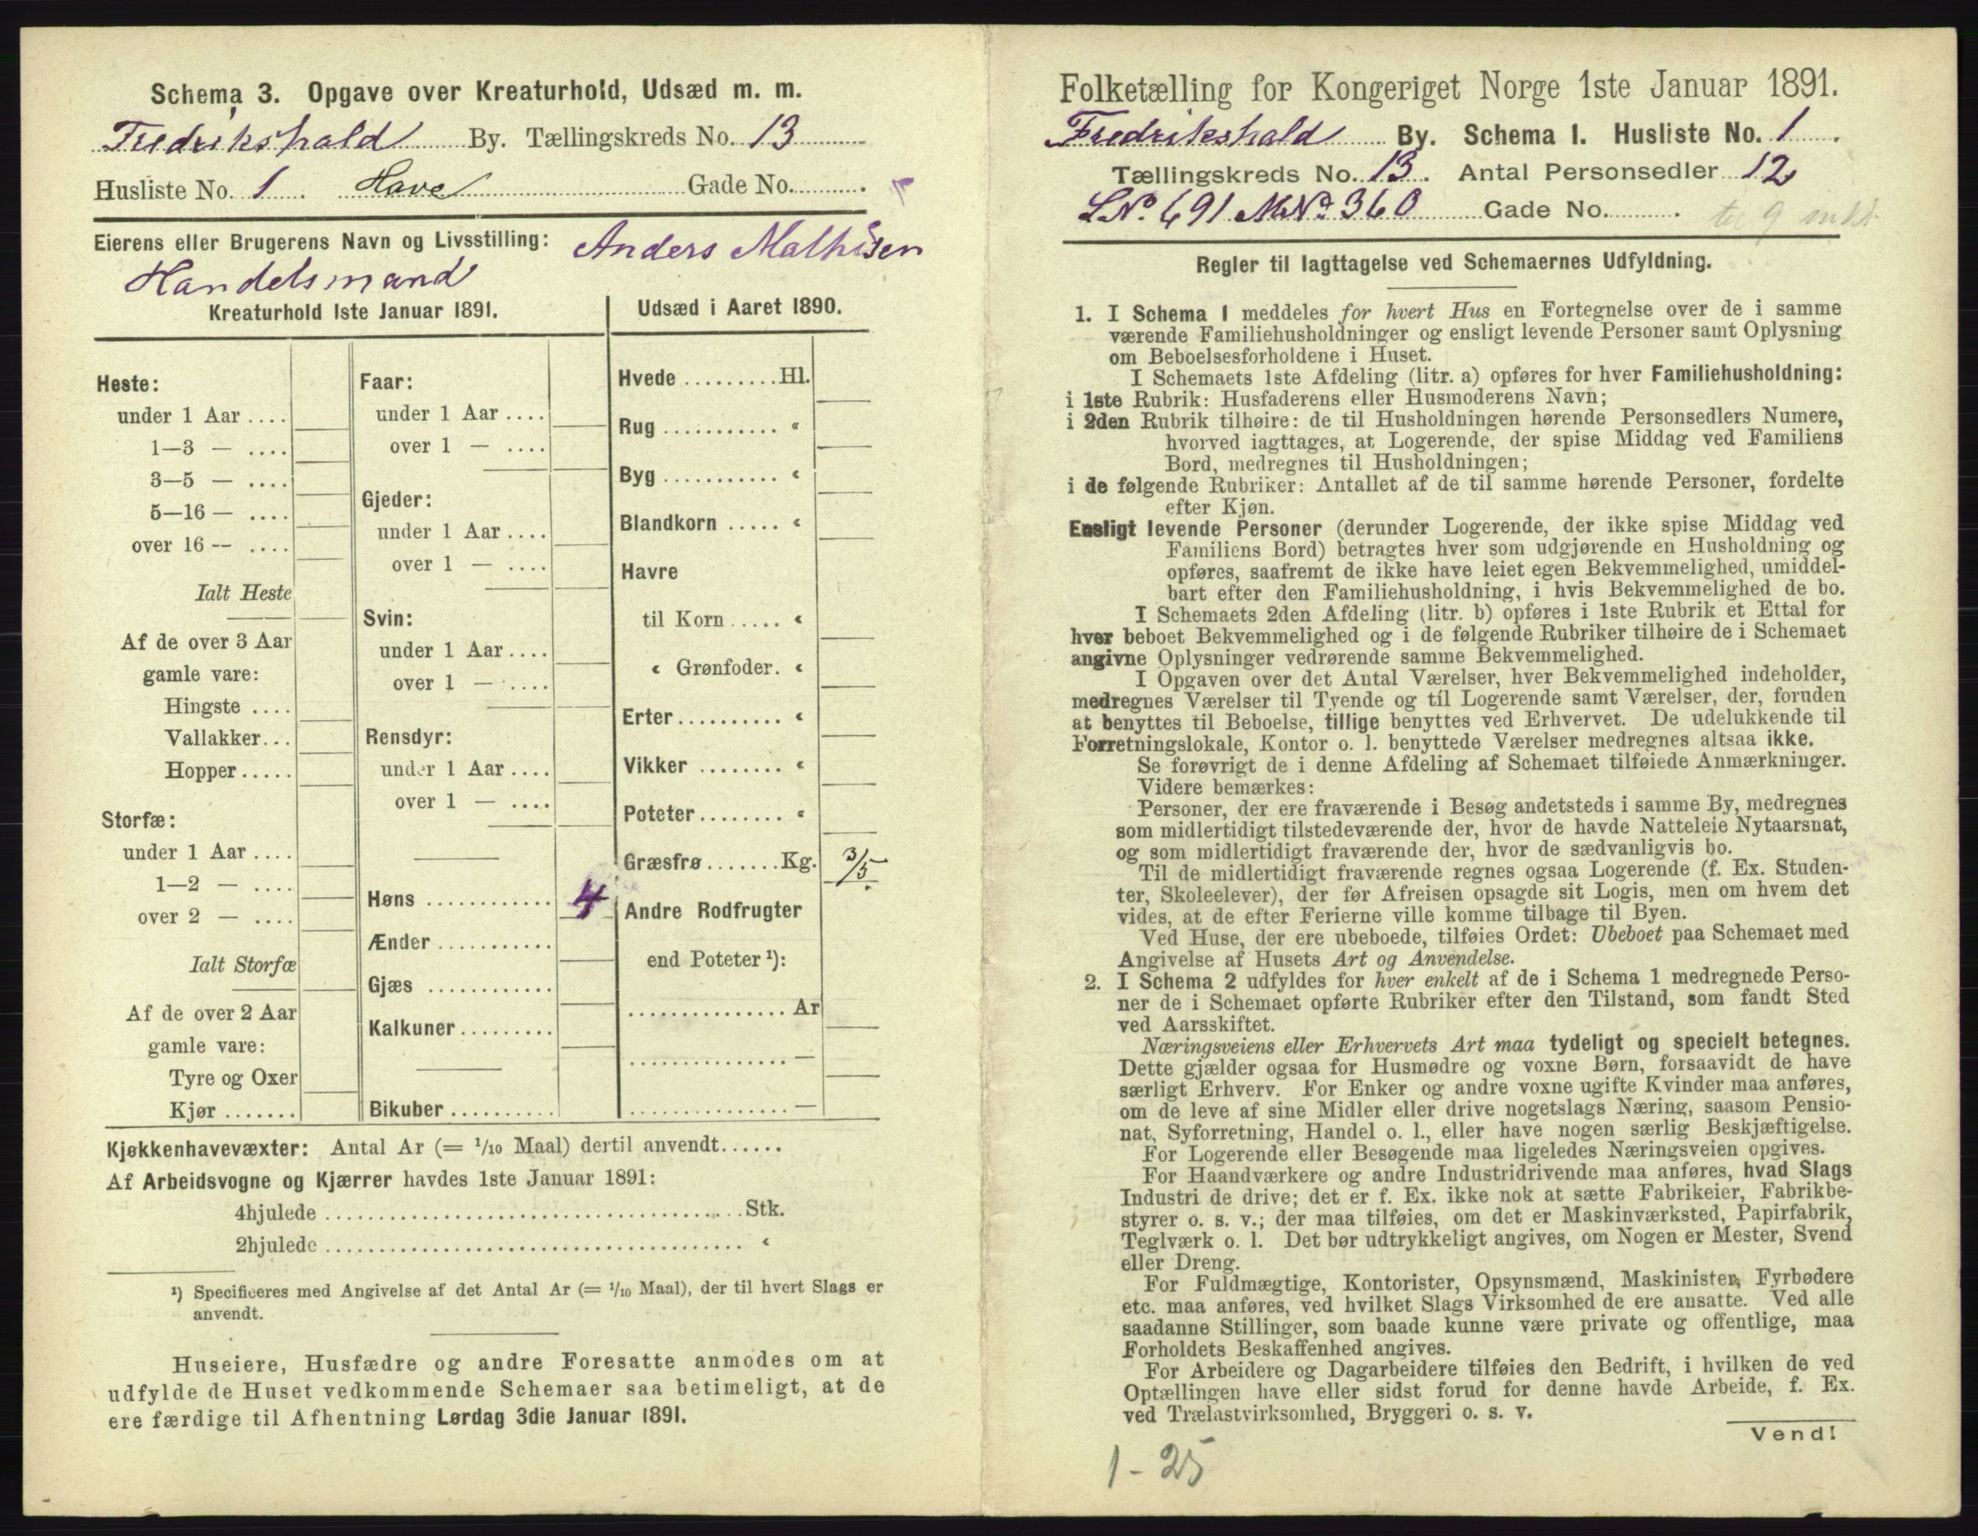 Schema 3. Opgave over Kreaturhold, Udsæd m. m.
Fredrikshald By. Tællingskreds No. 13
Husliste No. 1 Have Gade No.
Eierens eller Brugerens Navn og Livsstilling: Anders Mathisen
Handelsmand
Kreaturhold 1ste Januar 1891.
Heste:
under 1 Aar ....
1—3 — ....
3—5 — ....
5—16 — ....
over 16 — ....
Ialt Heste
Af de over 3 Aar
gamle vare:
Hingste ....
Vallakker...
Hopper.....
Storfæ:
under 1 Aar ....
1—2 — ....
over 2 — ....
Ialt Storfæ
Af de over 2 Aar
gamle vare:
Tyre og Oxer
Kjør .......
Faar:
under 1 Aar ....
over 1 — ....
Gjeder:
under 1 Aar ....
over 1 — ....
Svin:
under 1 Aar ....
over 1 — ....
Rensdyr:
under 1 Aar ....
over 1 — ....
Høns ............ 4
Ænder ...........
Gjæs ............
Kalkuner .........
Bikuber ..........
Udsæd i Aaret 1890.
Hvede .........Hl.
Rug ........... "
Byg ........... "
Blandkorn ..... "
Havre
til Korn ..... "
" Grønfoder. "
Erter.......... "
Vikker ........ "
Poteter........ "
Græsfrø .......Kg. 3/5
Andre Rodfrugter
end Poteter ¹):
............... Ar
............... —
............... —
Kjøkkenhavevæxter: Antal Ar (= 1/10 Maal) dertil anvendt......
Af Arbeidsvogne og Kjærrer havdes 1ste Januar 1891:
4hjulede ........................................ Stk.
2hjulede ........................................ "
¹) Specificeres med Angivelse af det Antal Ar (= 1/10 Maal), der til hvert Slags er
anvendt.
Huseiere, Husfædre og andre Foresatte anmodes om at
udfylde de Huset vedkommende Schemaer saa betimeligt, at de
ere færdige til Afhentning Lørdag 3die Januar 1891.
Folketælling for Kongeriget Norge 1ste Januar 1891.
Fredrikshald By. Schema I. Husliste No. 1
Tællingskreds No. 13. Antal Personsedler 12
L.No. 691 M.No. 360 Gade No.
Regler til Iagttagelse ved Schemaernes Udfyldning.
1. I Schema 1 meddeles for hvert Hus en Fortegnelse over de i samme
værende Familiehusholdninger og ensligt levende Personer samt Oplysning
om Beboelsesforholdene i Huset.
I Schemaets 1ste Afdeling (litr. a) opføres for hver Familiehusholdning:
i 1ste Rubrik: Husfaderens eller Husmoderens Navn;
i 2den Rubrik tilhøire: de til Husholdningen hørende Personsedlers Numere,
hvorved iagttages, at Logerende, der spise Middag ved Familiens
Bord, medregnes til Husholdningen;
i de følgende Rubriker: Antallet af de til samme hørende Personer, fordelte
efter Kjøn.
Ensligt levende Personer (derunder Logerende, der ikke spise Middag ved
Familiens Bord) betragtes hver som udgjørende en Husholdning og
opføres, saafremt de ikke have leiet egen Bekvemmelighed, umiddel-
bart efter den Familiehusholdning, i hvis Bekvemmelighed de bo.
I Schemaets 2den Afdeling (litr. b) opføres i 1ste Rubrik et Ettal for
hver beboet Bekvemmelighed og i de følgende Rubriker tilhøire de i Schemaet
angivne Oplysninger vedrørende samme Bekvemmelighed.
I Opgaven over det Antal Værelser, hver Bekvemmelighed indeholder,
medregnes Værelser til Tyende og til Logerende samt Værelser, der, foruden
at benyttes til Beboelse, tillige benyttes ved Erhvervet. De udelukkende til
Forretningslokale, Kontor o. l. benyttede Værelser medregnes altsaa ikke.
Se forøvrigt de i denne Afdeling af Schemaet tilføiede Anmærkninger.
Videre bemærkes:
Personer, der ere fraværende i Besøg andetsteds i samme By, medregnes
som midlertidigt tilstedeværende der, hvor de havde Natteleie Nytaarsnat,
og som midlertidigt fraværende der, hvor de sædvanligvis bo.
Til de midlertidigt fraværende regnes ogsaa Logerende (f. Ex. Studen-
ter, Skoleelever), der før Afreisen opsagde sit Logis, men om hvem det
vides, at de efter Ferierne ville komme tilbage til Byen.
Ved Huse, der ere ubeboede, tilføies Ordet: Ubeboet paa Schemaet med
Angivelse af Husets Art og Anvendelse.
2. I Schema 2 udfyldes for hver enkelt af de i Schema 1 medregnede Perso-
ner de i Schemaet opførte Rubriker efter den Tilstand, som fandt Sted
ved Aarsskiftet.
Næringsveiens eller Erhvervets Art maa tydeligt og specielt betegnes.
Dette gjælder ogsaa for Husmødre og voxne Børn, forsaavidt de have
særligt Erhverv. For Enker og andre voxne ugifte Kvinder maa anføres,
om de leve af sine Midler eller drive nogetslags Næring, saasom Pensio-
nat, Syforretning, Handel o. l., eller have nogen særlig Beskjæftigelse.
For Logerende eller Besøgende maa ligeledes Næringsveien opgives.
For Haandværkere og andre Industridrivende maa anføres, hvad Slags
Industri de drive; det er f. Ex. ikke nok at sætte Fabrikeier, Fabrikbe-
styrer o. s. v.; der maa tilføies, om det er Maskinværksted, Papirfabrik,
Teglværk o. l. Det bør udtrykkeligt angives, om Nogen er Mester, Svend
eller Dreng.
For Fuldmægtige, Kontorister, Opsynsmænd, Maskinister, Fyrbødere
etc. maa anføres, ved hvilket Slags Virksomhed de ere ansatte. Ved alle
saadanne Stillinger, som baade kunne være private og offentlige, maa
Forholdets Beskaffenhed angives.
For Arbeidere og Dagarbeidere tilføies den Bedrift, i hvilken de ved
Optællingen have eller sidst forud for denne havde Arbeide, f. Ex.
ved Trælastvirksomhed, Bryggeri o. s. v.
Vend!
1 - 25